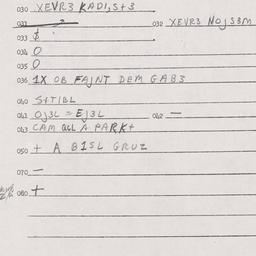 030 XEVR3 KADI,S+3
031
032 XEVR3 NOJS3M
033 $
034 O
035 O
036 1X OB FAJNT DEM GAB3
040 S+TIBL
041 OJ3L = EJ3L 042 —
043 CAM A PARK+
050 + A B1SL GRUZ
070 —
080 +